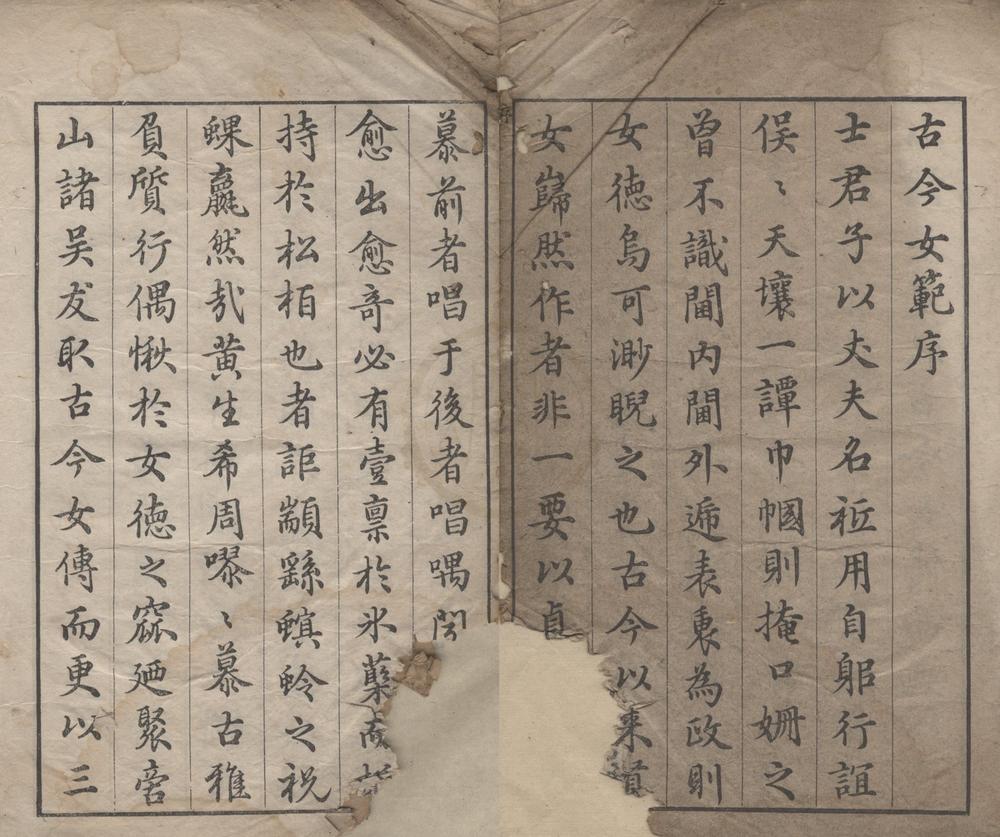 古今女範序
士君子以丈夫名袵用自躳行誼
俣〻天壤一譚巾幗則掩口姍之
曾不識閫内閫外遞表裏為政則
女德烏可渺睨之也古今以来道
女歸然作者非一要以貞
慕前者唱于後者唱喁閔
愈出愈奇必有壹稟於氷蘗
持於松栢也者詎顓繇螟蛉之祝
蜾蠃然㢤黄生希周嘐〻慕古雅
負質行偶愀於女德之窳廼聚旁
山諸吴友取古今女傳而更以三